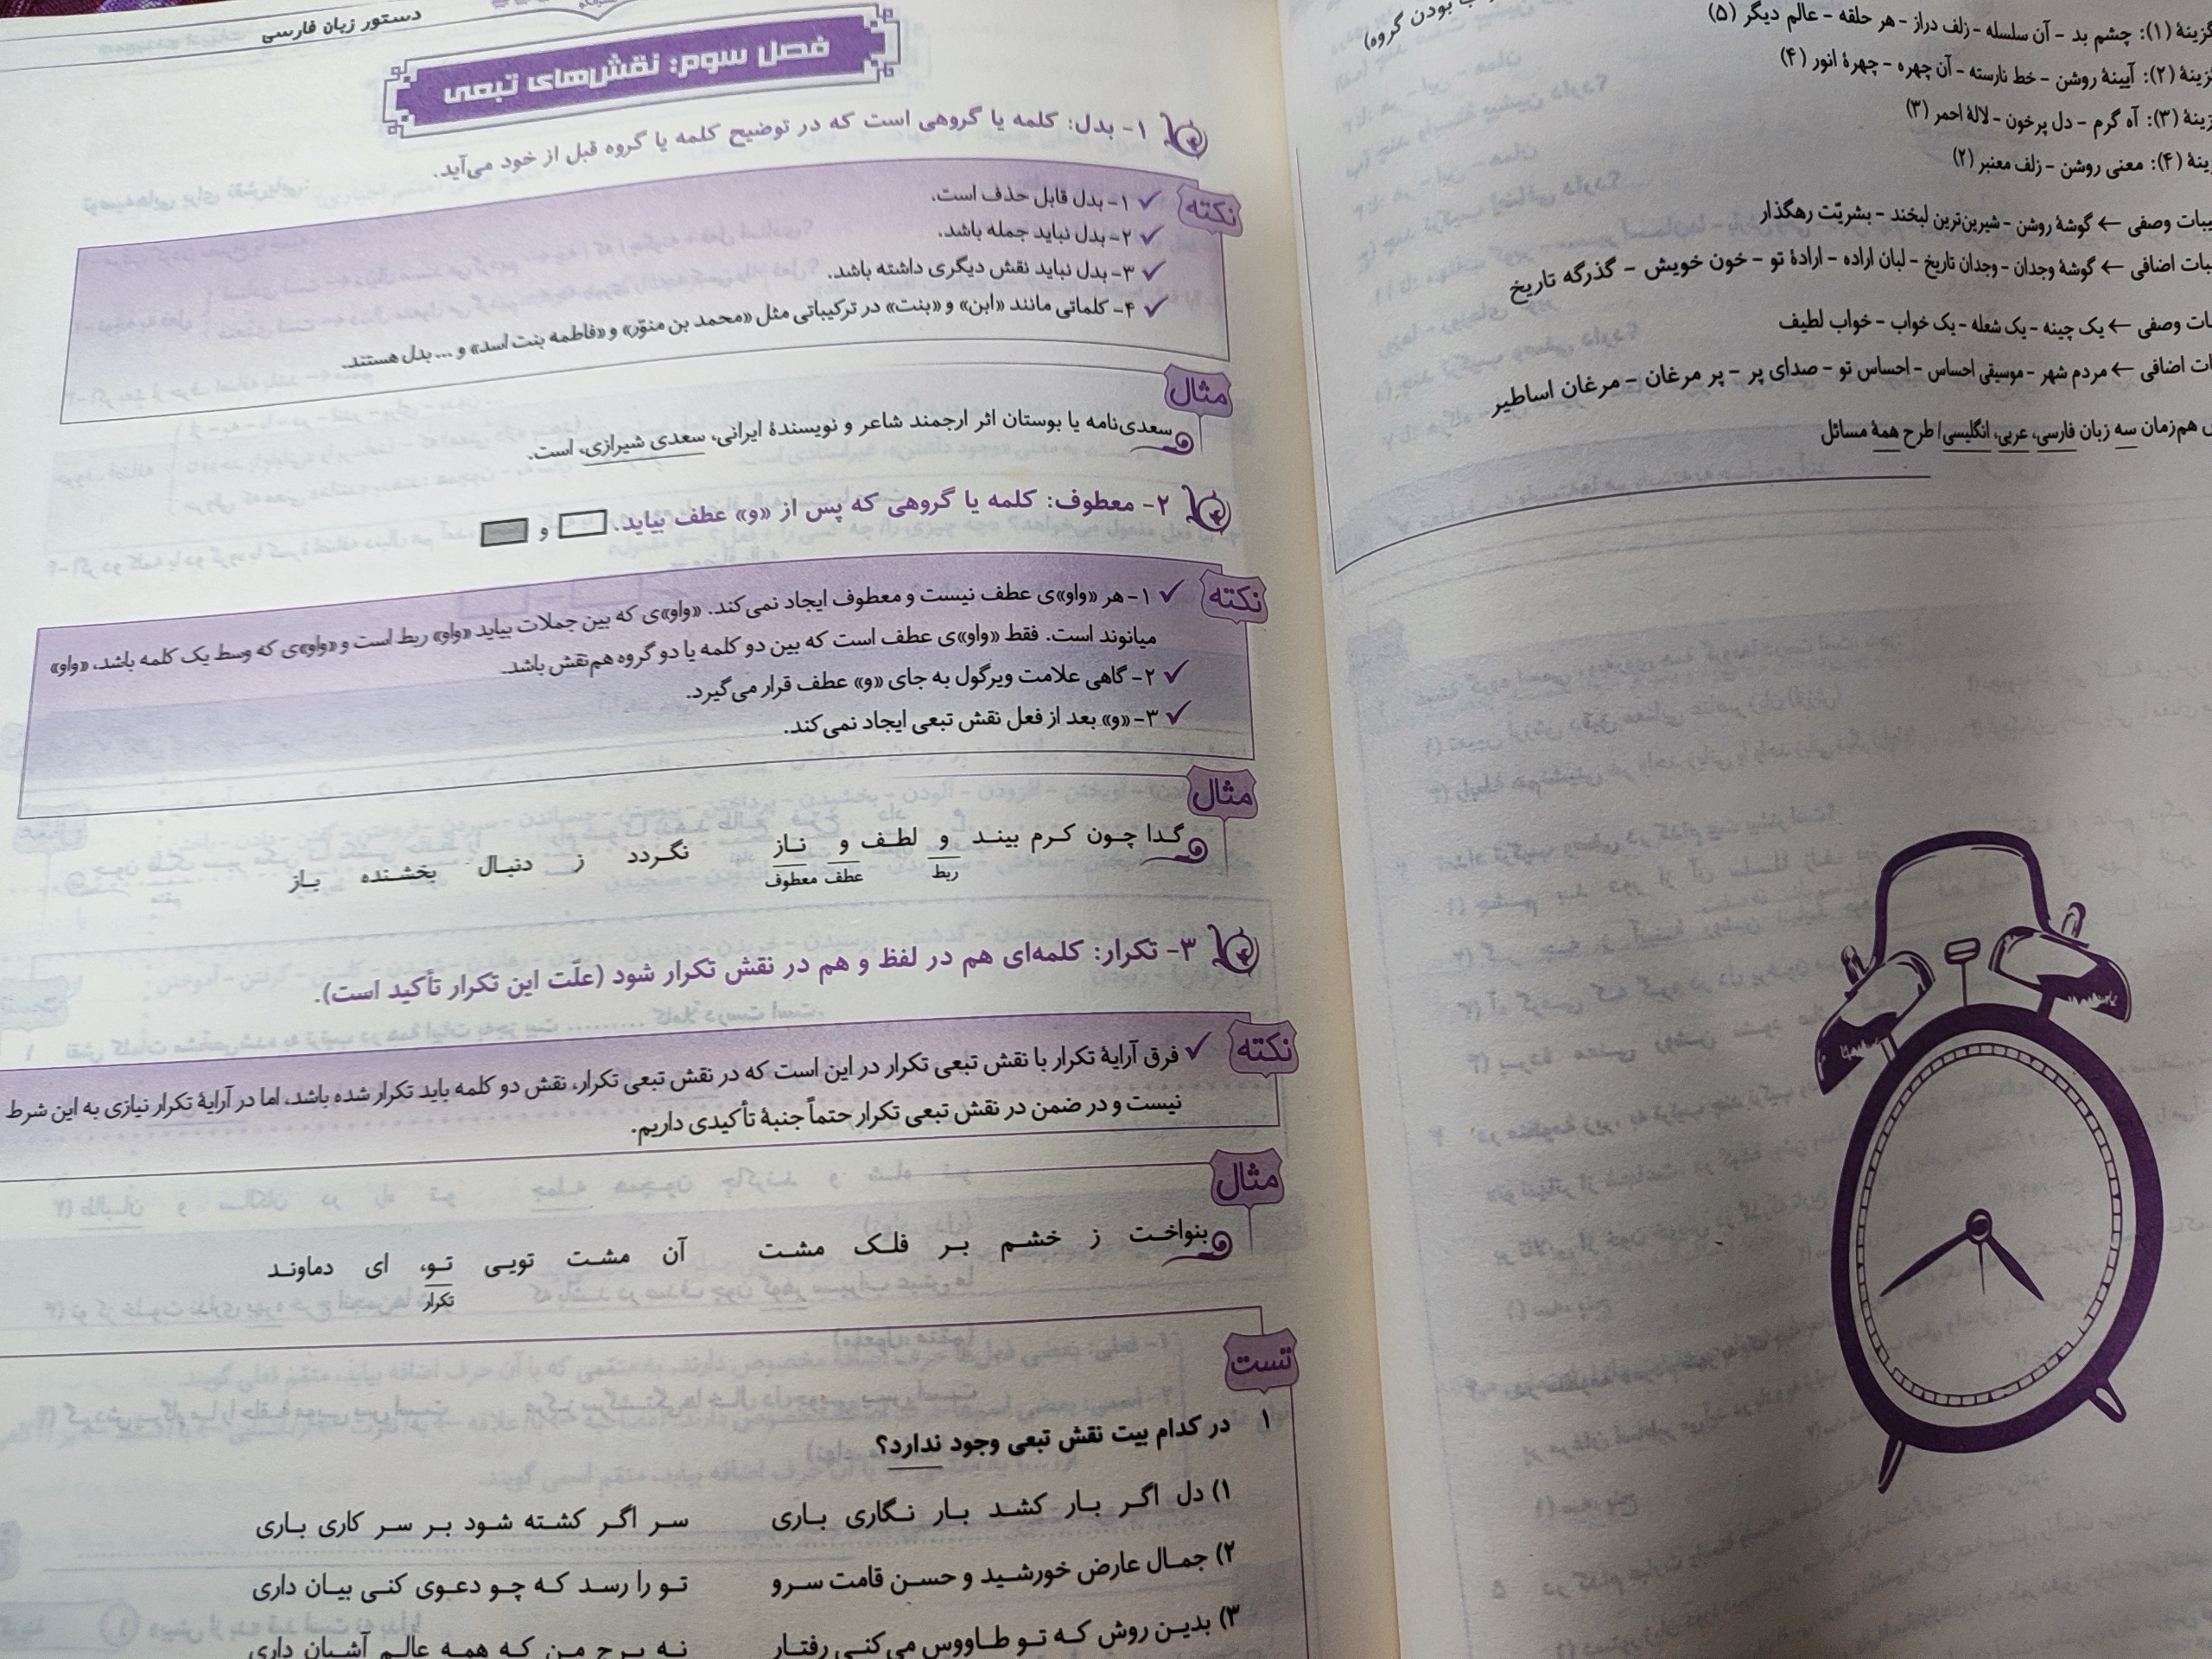 دستور زبان فارسی
فصل سوم: نقش‌های تبعی
۱- بدل: کلمه یا گروهی است که در توضیح کلمه یا گروه قبل از خود می‌آید.
نکته
✓ ۱- بدل قابل حذف است.
✓ ۲- بدل نباید جمله باشد.
✓ ۳- بدل نباید نقش دیگری داشته باشد.
✓ ۴- کلماتی مانند «ابن» و «بنت» در ترکیباتی مثل «محمد بن منوّر» و «فاطمه بنت اسد» و ... بدل هستند.
مثال
سعدی‌نامه یا بوستان اثر ارجمند شاعر و نویسندهٔ ایرانی، سعدی شیرازی، است.
۲- معطوف: کلمه یا گروهی که پس از «و» عطف بیاید. و
نکته
✓ ۱- هر «واو»ی عطف نیست و معطوف ایجاد نمی‌کند. «واو»ی که بین جملات بیاید «واو» ربط است و «واو»ی که وسط یک کلمه باشد، «واو»
میانوند است. فقط «واو»ی عطف است که بین دو کلمه یا دو گروه هم‌نقش باشد.
✓ ۲- گاهی علامت ویرگول به جای «و» عطف قرار می‌گیرد.
✓ ۳- «و» بعد از فعل نقش تبعی ایجاد نمی‌کند.
مثال
گدا چون کرم بیند و لطف و ناز نگردد ز دنبال بخشنده باز
ربط عطف معطوف
۳- تکرار: کلمه‌ای هم در لفظ و هم در نقش تکرار شود (علّت این تکرار تأکید است).
نکته
✓ فرق آرایهٔ تکرار با نقش تبعی تکرار در این است که در نقش تبعی تکرار، نقش دو کلمه باید تکرار شده باشد، اما در آرایهٔ تکرار نیازی به این شرط
نیست و در ضمن در نقش تبعی تکرار حتماً جنبهٔ تأکیدی داریم.
مثال
بنواخت ز خشم بر فلک مشت آن مشت تویی تو، ای دماوند
تکرار
تست
۱ در کدام بیت نقش تبعی وجود ندارد؟
۱) دل اگر بار کشد بار نگاری باری سر اگر کشته شود بر سر کاری باری
۲) جمال عارض خورشید و حسن قامت سرو تو را رسد که چو دعوی کنی بیان داری
۳) بدین روش که تو طاووس می‌کنی رفتار نه برج من که همه عالم آشیان داری
بودن گروه)
گزینهٔ (۱): چشم بد - آن سلسله - زلف دراز - هر حلقه - عالم دیگر (۵)
(۲): آیینهٔ روشن - خط نارسته - آن چهره - چهرهٔ انور (۴)
(۳): آه گرم - دل پرخون - لالهٔ احمر (۳)
(۴): معنی روشن - زلف معنبر (۲)
وصفی ← گوشهٔ روشن - شیرین‌ترین لبخند - بشریّت رهگذار
اضافی ← گوشهٔ وجدان - وجدان تاریخ - لبان اراده - ارادهٔ تو - خون خویش - گذرگه تاریخ
وصفی ← یک چینه - یک شعله - یک خواب - خواب لطیف
اضافی ← مردم شهر - موسیقی احساس - احساس تو - صدای پر - پر مرغان - مرغان اساطیر
هم‌زمان سه زبان فارسی، عربی، انگلیسی/ طرح همهٔ مسائل